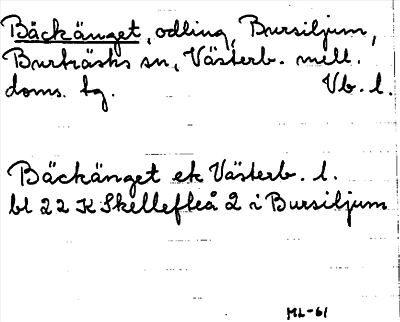 Bäckänget, odling, Bursiljum,
Burträsks sn, Västerb. mell.
doms. tg. Vb. l.
Bäckänget ek Västerb. l.
bl 22 K Skellefteå 2 i Bursiljum
ML-61